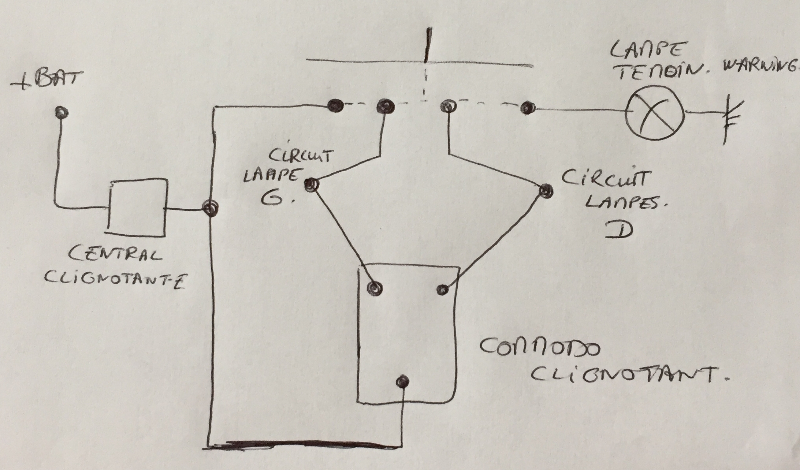 +BAT
LAMPE
TEMOIN. WARNING.
CIRCUIT
LAMPE
G.
CIRCUIT
LAMPES.
D
CENTRAL
CLIGNOTANTE
COMMODO
CLIGNOTANT.